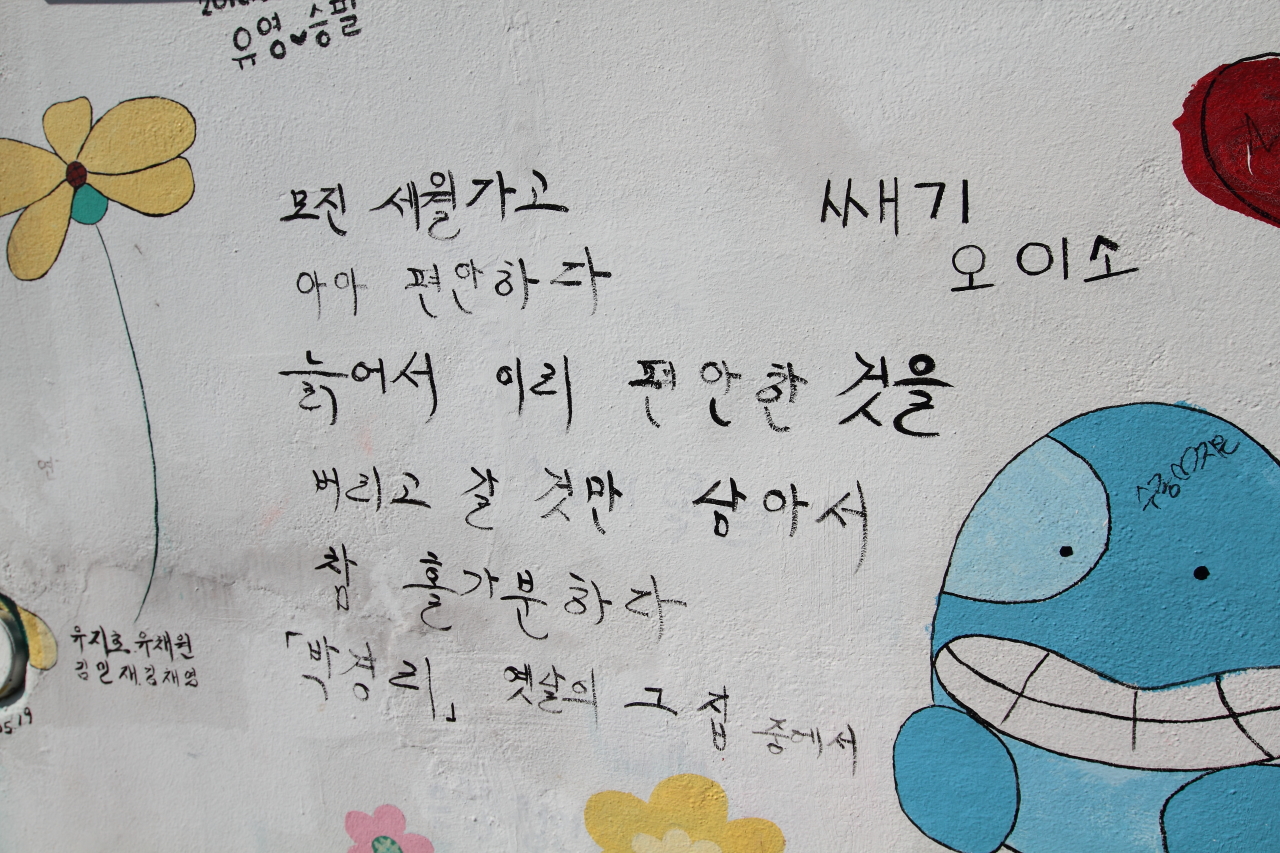 유영♥승필
모진 세월가고
아아 편안하다
늙어서 이리 편안한 것을
버리고 갈 것만 남아서
참 홀가분하다
「박경리」 옛날의 그 집 중에서
쌔기
오이소
유지호 유채원
김민재 김채영